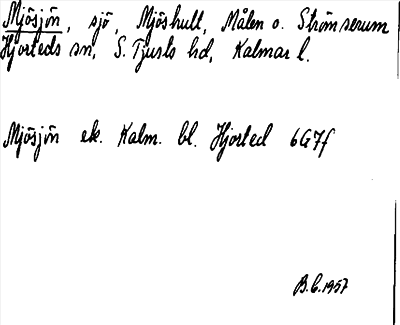 Mjösjön, sjö, Mjöshult, Målen o. Strömserum
Hjorteds sn, S. Tjusts hd, Kalmar l.
Mjösjön ek. Kalm. bl. Hjorted 6G7f
B.C. 1957